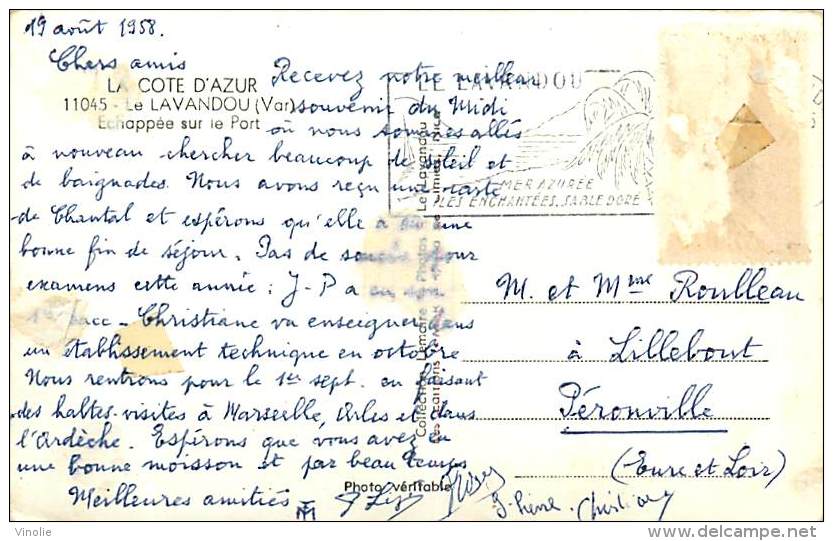 19 août 1958.
Chers amis
LA COTE D'AZUR
11045 - Le LAVANDOU (Var)
Echappée sur le Port
Recevez notre meilleur
souvenir du Midi
où nous sommes allés
à nouveau chercher beaucoup de soleil et
de baignades. Nous avons reçu une carte
de Chantal et espérons qu'elle a eu une
bonne fin de séjour. Pas de soucis pour
examens cette année : J-P a eu son
1er bacc - Christiane va enseigner dans
un établissement technique en octobre
Nous rentrons pour le 1er sept. en faisant
des haltes-visites à Marseille, Arles et dans
l'Ardèche. Espérons que vous avez eu
une bonne moisson et par beau temps
Meilleures amitiés
J-Pierre - Christiane
LE LAVANDOU
MER AZURÉE
ILES ENCHANTÉES, SABLE DORÉ
Collection Lemaire Photos Le Lavandou
Photo véritable
M. et Mme Roulleau
à Lillebout
Péronville
(Eure et Loir)
Vinolie
delcampe.net